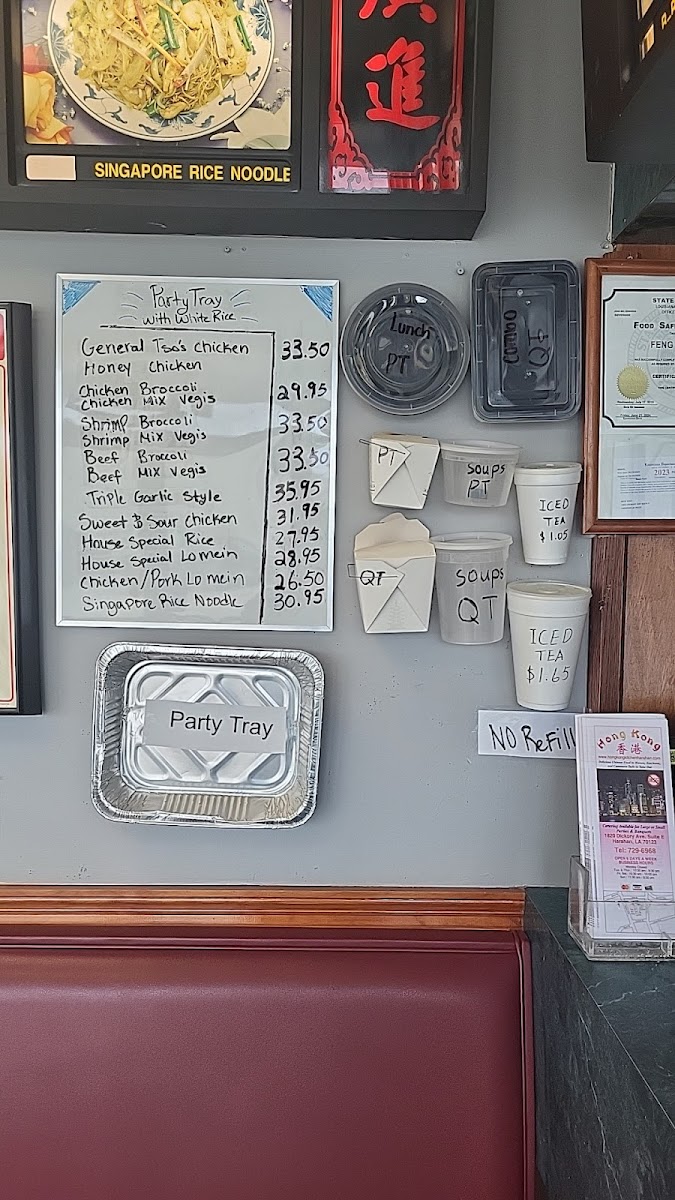 SINGAPORE RICE NOODLE
廣進
Party Tray
with White Rice
General Tso's Chicken 33.50
Honey Chicken
Chicken Broccoli 29.95
Chicken Mix Vegis
Shrimp Broccoli 33.50
Shrimp Mix Vegis
Beef Broccoli 33.50
Beef Mix Vegis
Triple Garlic Style 35.95
Sweet & Sour Chicken 31.95
House Special Rice 27.95
House Special Lomein 28.95
Chicken/Pork Lomein 26.50
Singapore Rice Noodle 30.95
Lunch
PT
Combo
QT
PT
Soups
PT
ICED
TEA
$1.05
QT
Soups
QT
ICED
TEA
$1.65
NO Refill
Party Tray
STATE
Food Saf
FENG
CERTIFIC
2023
Hong Kong
香港
Catering Available for Large or Small
Parties & Banquets
1829 Dickory Ave. Suite E
Harahan, LA 70123
Tel: 729-6968
OPEN 6 DAYS A WEEK
BUSINESS HOURS